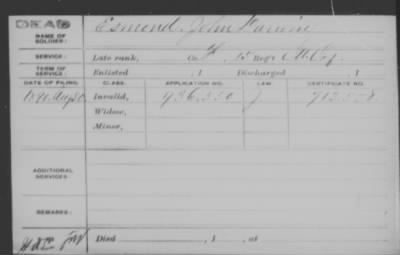 DEAD
NAME OF SOLDIER: Esmond, John
SERVICE: Late rank, Co. 15 Reg't
TERM OF SERVICE: Enlisted , 1 Discharged , 1
DATE OF FILING. CLASS. APPLICATION NO. LAW. CERTIFICATE NO.
1890, Aug Invalid, 936.550 J
Widow,
Minor,
ADDITIONAL SERVICES:
REMARKS:
Died , 1 , at